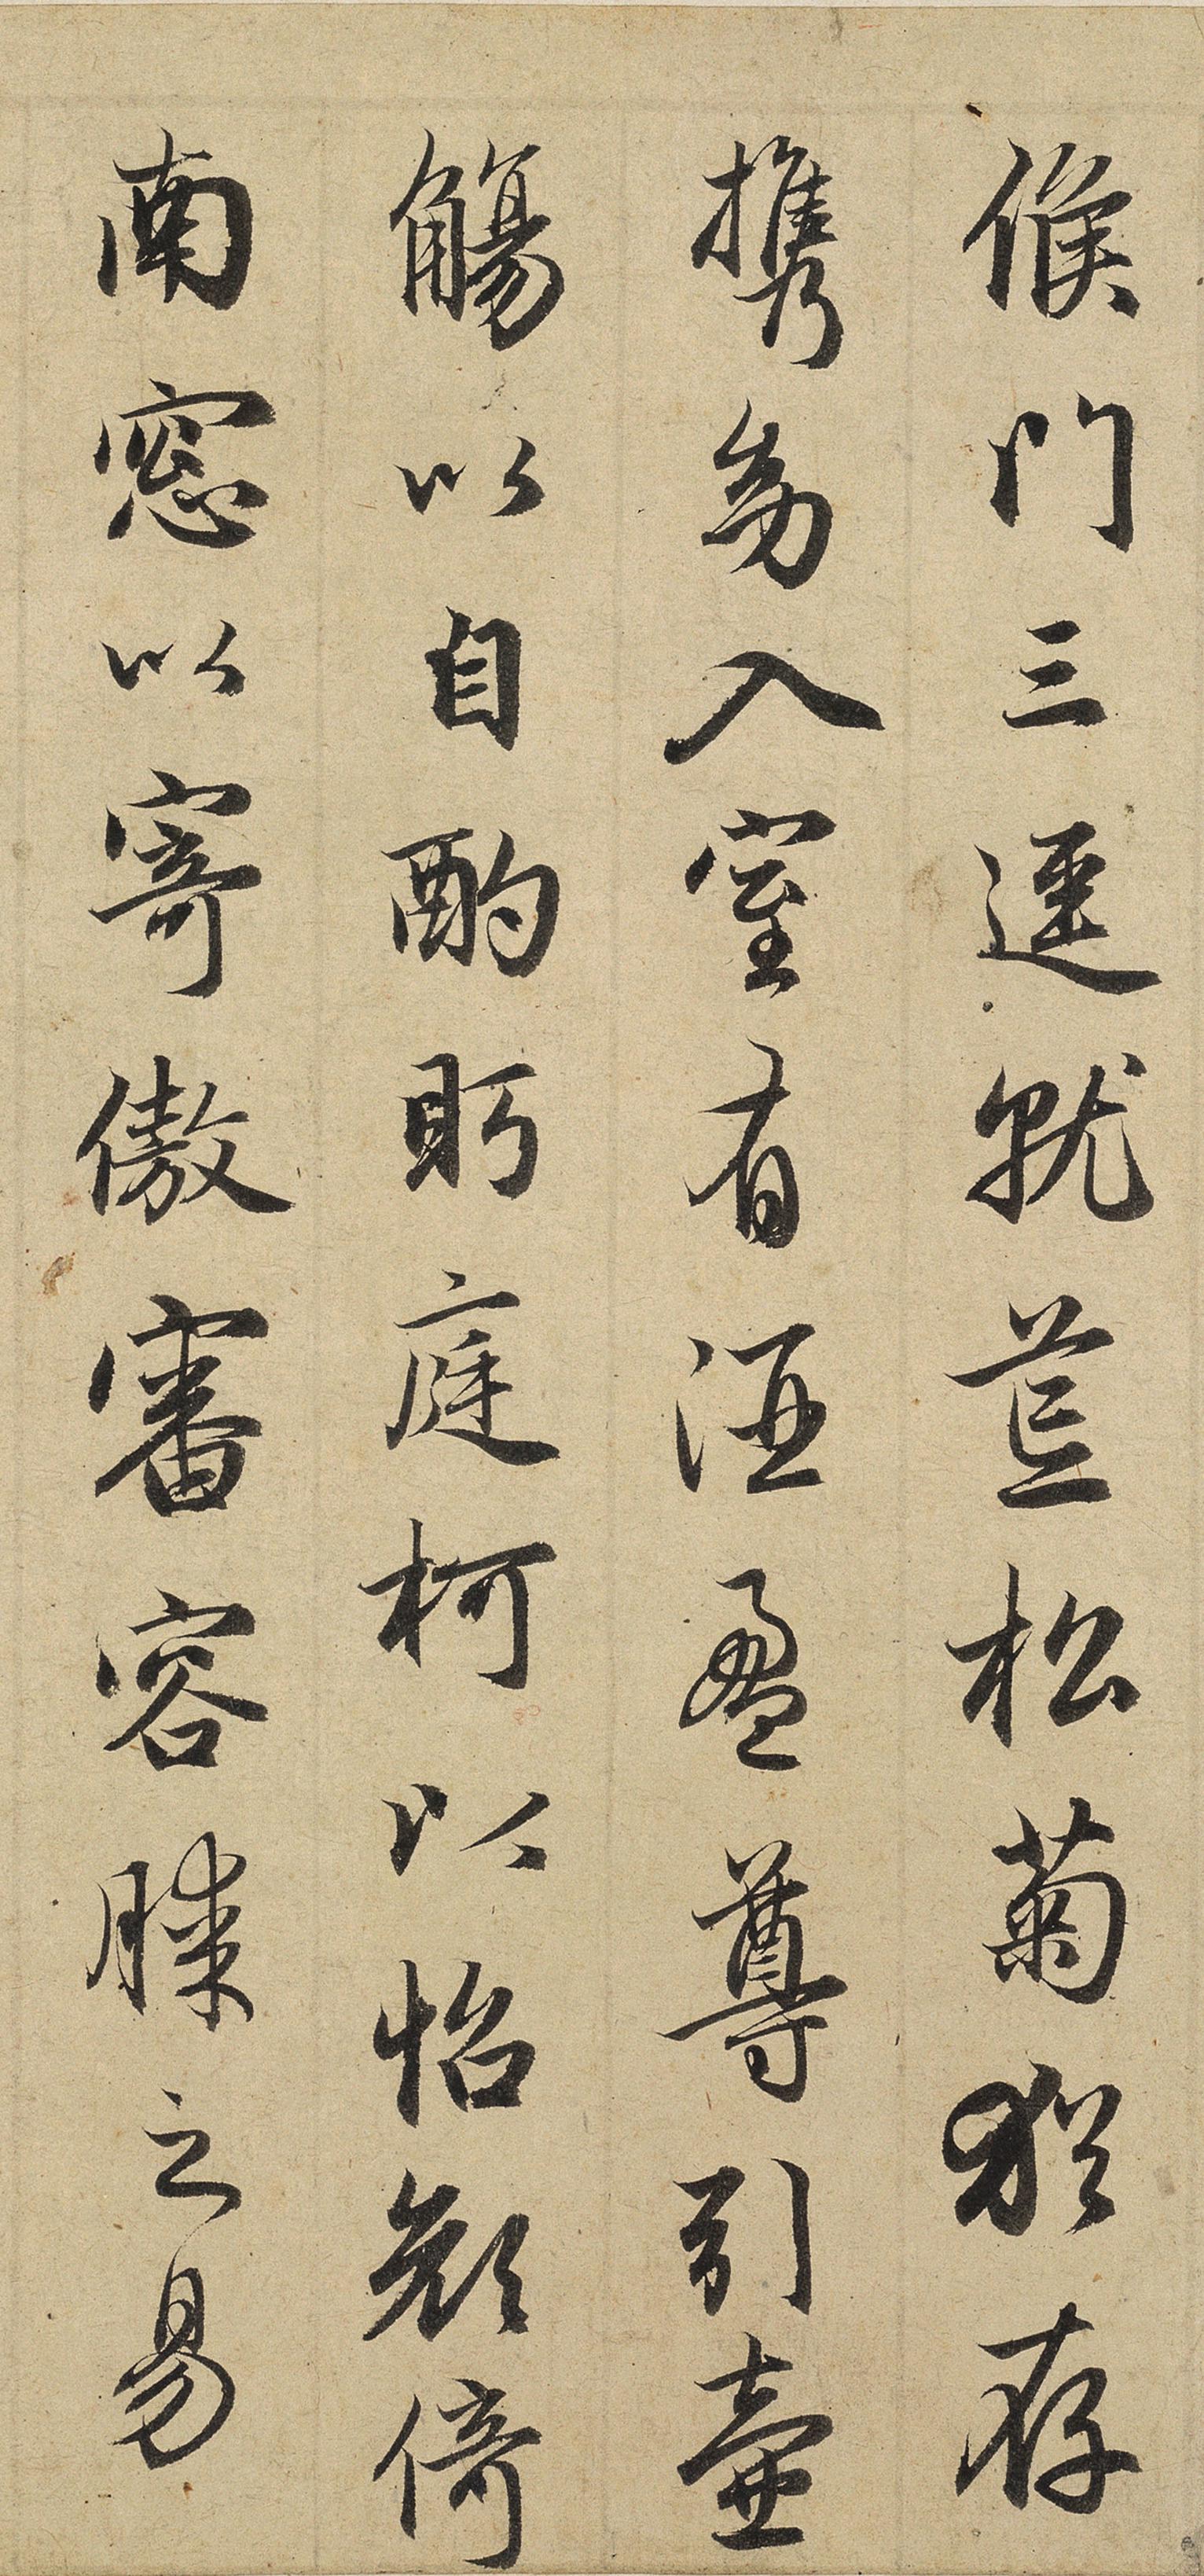 候門三逕就荒松菊猶存
攜幼入室有酒盈尊引壺
觴以自酌眄庭柯以怡顏倚
南窓以寄傲審容膝之易